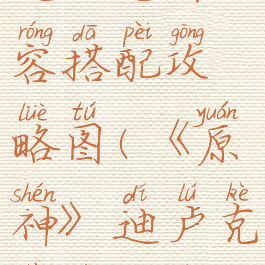 róng dā pèi gōng
容搭配攻
lüè tú yuán
略图(《原
shén dí lú kè
神》迪卢克